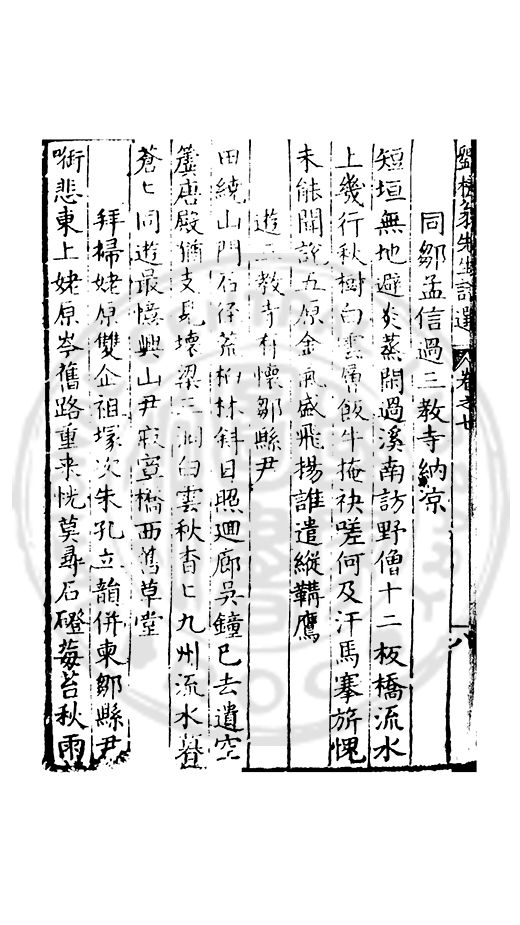 翁先生詩選 卷之廿
八
同鄒孟信過三教寺納凉
短垣無地避炎蒸閒過溪南訪野僧十二板橋流水
上幾行秋樹白雲層飯牛掩袂嗟何及汗馬搴旂愧
未能聞說五原金氣盛飛揚誰遣縱鞲鷹
遊三教寺有懷鄒縣尹
田繞山門石徑荒柏林斜日照廻廊吳鐘已去遺空
簴唐殿猶支半壞梁三洞白雲秋杳匕九州流水暮
蒼匕同遊最憶興山尹寂寞橋西舊草堂
拜掃姥原雙企祖塚次朱孔立韻併柬鄒縣尹
銜悲東上姥原岑舊路重来恍莫尋石磴莓苔秋雨